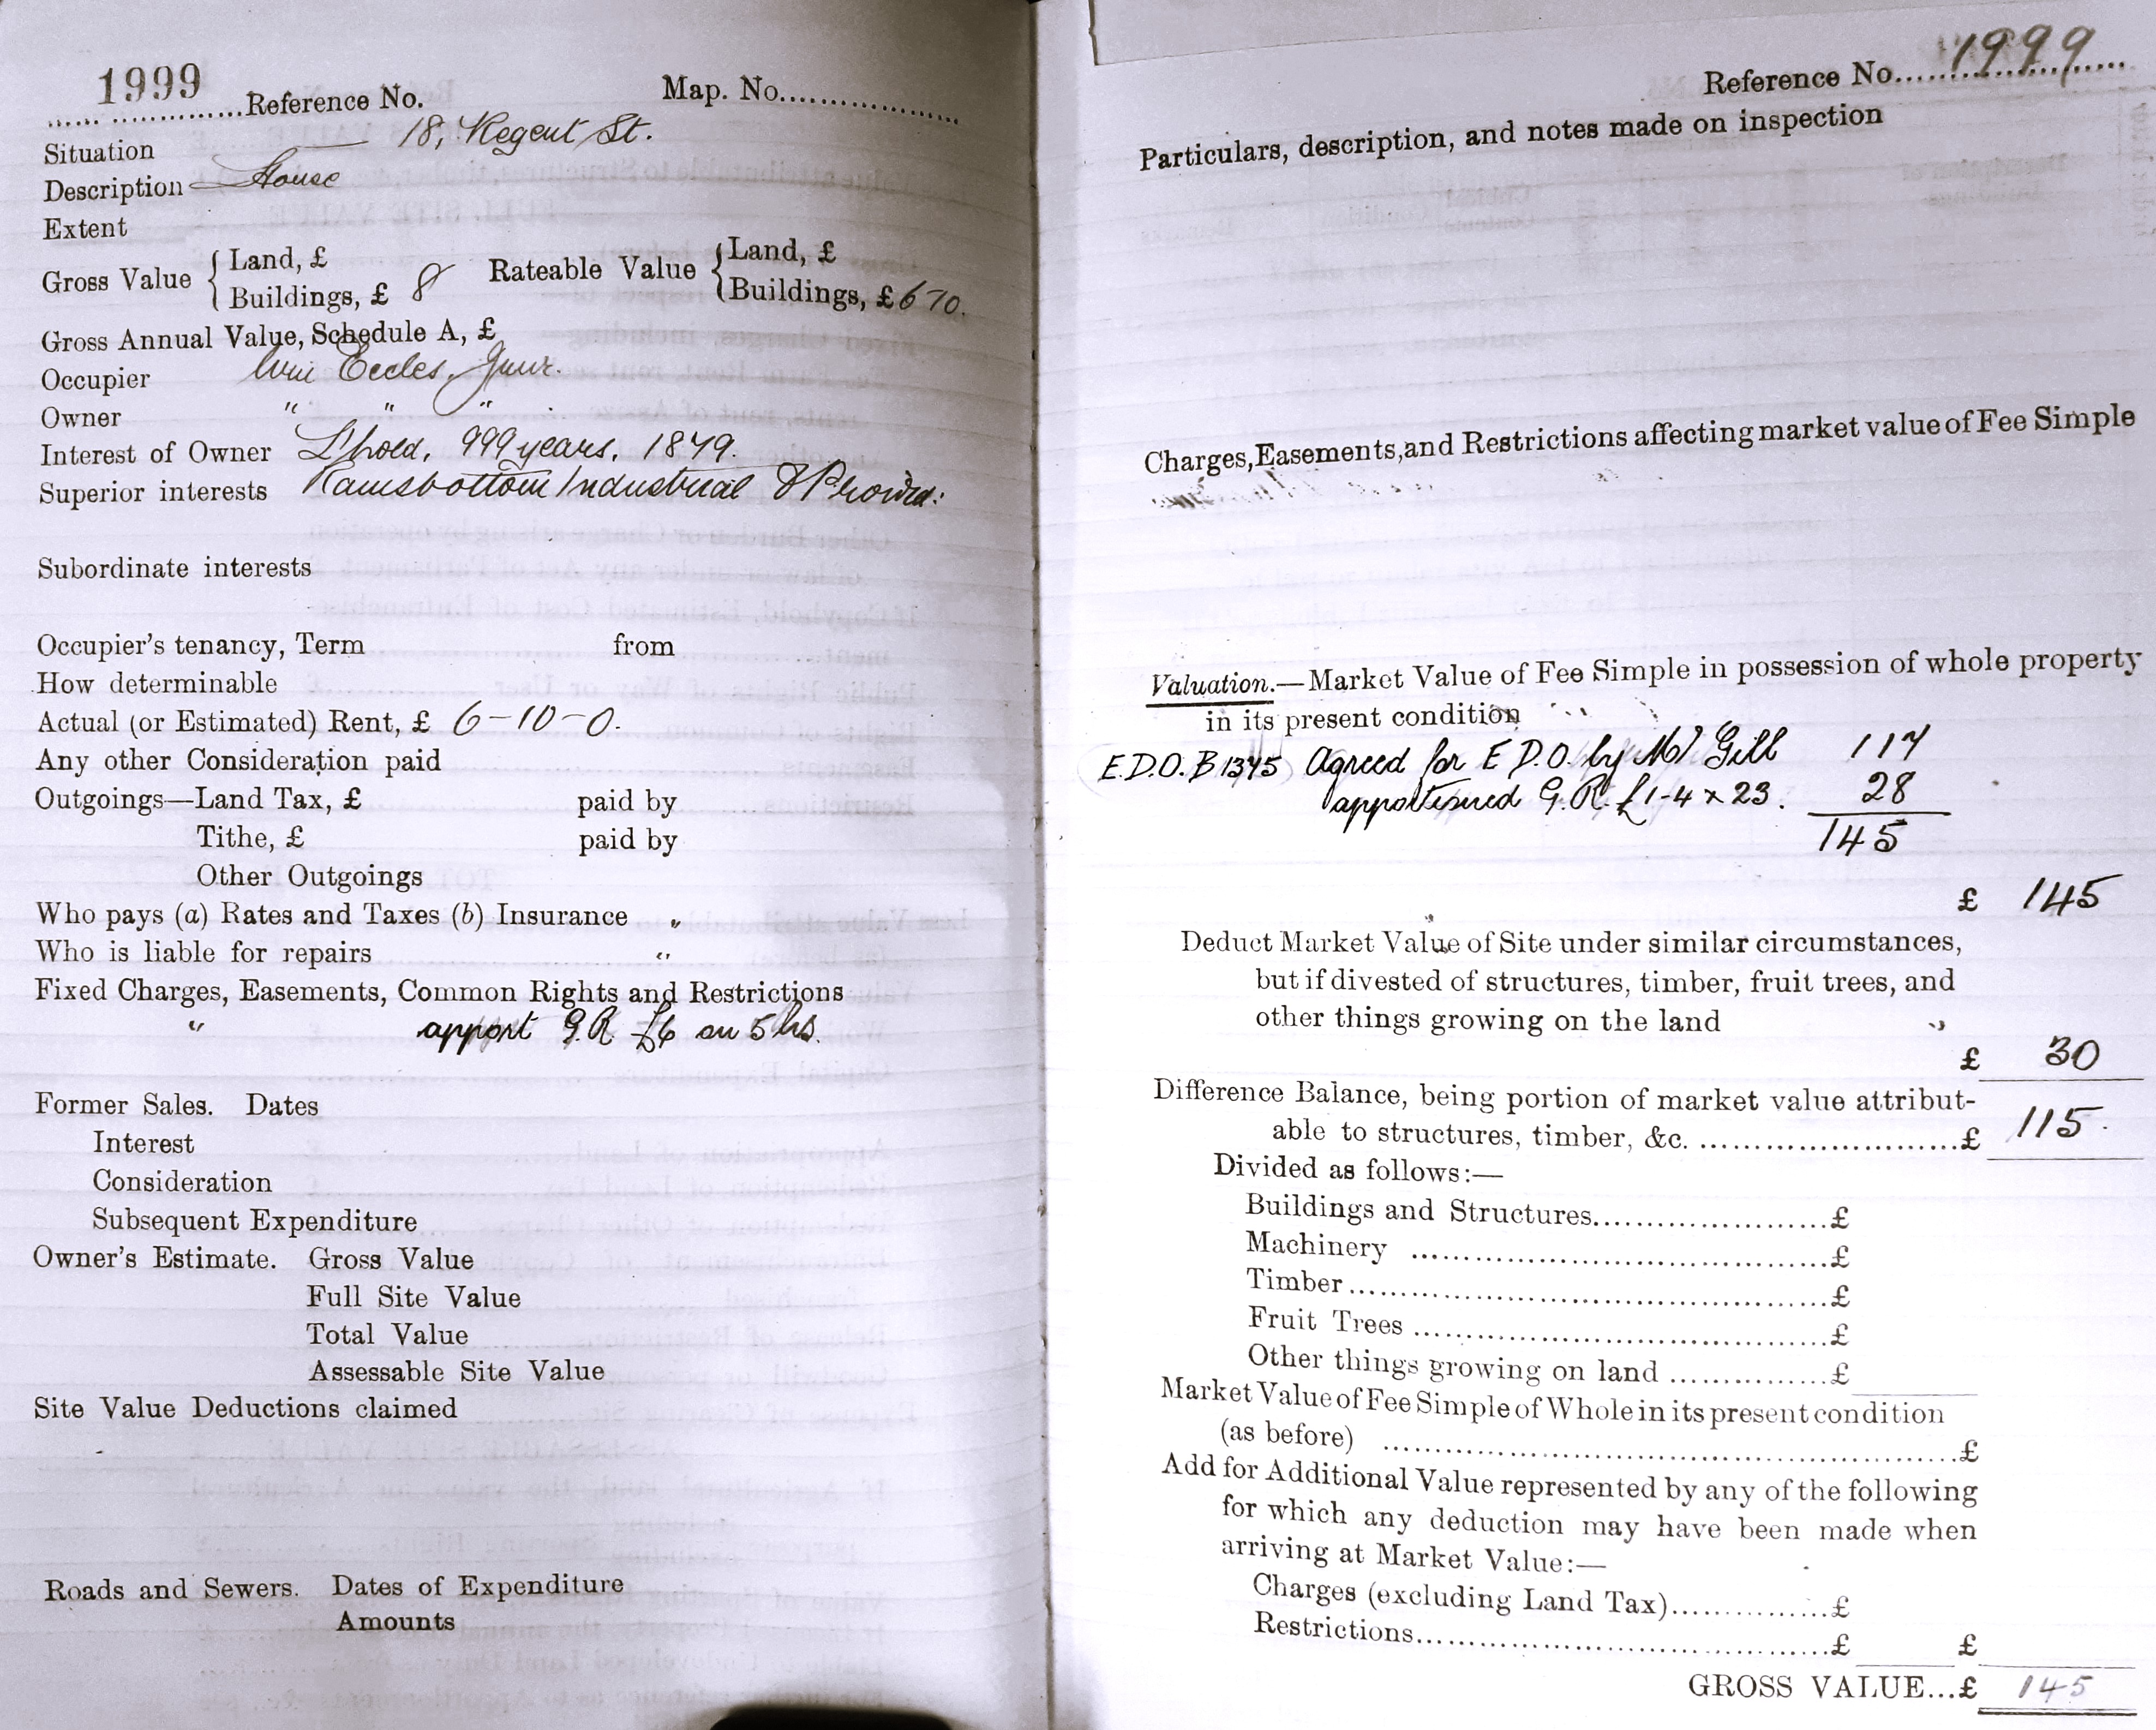 1999
.......................Reference No. Map. No......................
Situation 18, Regent St.
Description House
Extent
Gross Value { Land, £ Rateable Value { Land, £
Buildings, £ 8 Buildings, £ 6 10.
Gross Annual Value, Schedule A, £
Occupier Wm Eccles, Junr.
Owner " " "
Interest of Owner L'hold, 999 years, 1879.
Superior interests Ramsbottom Industrial & Provid:
Subordinate interests
Occupier's tenancy, Term from
How determinable
Actual (or Estimated) Rent, £ 6-10-0.
Any other Consideration paid
Outgoings—Land Tax, £ paid by
Tithe, £ paid by
Other Outgoings
Who pays (a) Rates and Taxes (b) Insurance "
Who is liable for repairs "
Fixed Charges, Easements, Common Rights and Restrictions
" apport G.R. £6 on 5 hs.
Former Sales. Dates
Interest
Consideration
Subsequent Expenditure
Owner's Estimate. Gross Value
Full Site Value
Total Value
Assessable Site Value
Site Value Deductions claimed
Roads and Sewers. Dates of Expenditure
Amounts
Reference No. 1999
Particulars, description, and notes made on inspection
Charges, Easements, and Restrictions affecting market value of Fee Simple
Valuation.—Market Value of Fee Simple in possession of whole property
in its present condition
E.D.O. B 1375 Agreed for E.D.O. by Mr Gill 117
apportioned G.R. £1-4 x 23. 28
145
£ 145
Deduct Market Value of Site under similar circumstances,
but if divested of structures, timber, fruit trees, and
other things growing on the land
£ 30
Difference Balance, being portion of market value attribut-
able to structures, timber, &c. ...........................£ 115.
Divided as follows:—
Buildings and Structures.......................£
Machinery .........................................£
Timber................................................£
Fruit Trees .........................................£
Other things growing on land ................£
Market Value of Fee Simple of Whole in its present condition
(as before) ..........................................................£
Add for Additional Value represented by any of the following
for which any deduction may have been made when
arriving at Market Value:—
Charges (excluding Land Tax)...............£
Restrictions..........................................£ £
GROSS VALUE...£ 145